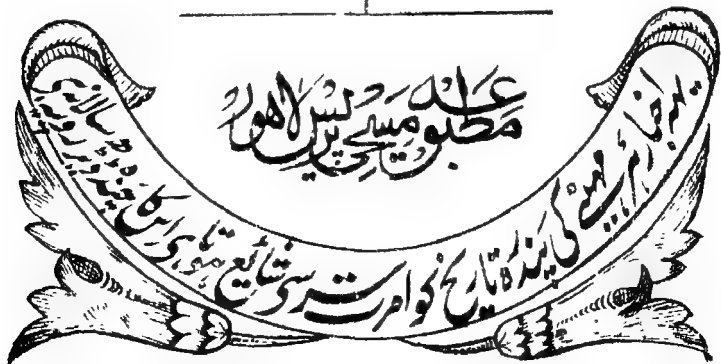 مطبوعہ مسیحی پریس لاھور
یہہ اخبار ہر مہینے کی پندرہ تاریخ کو امرت سر سی شائع ہوتا ہی اس کا چندہ روپیہ سالانہ